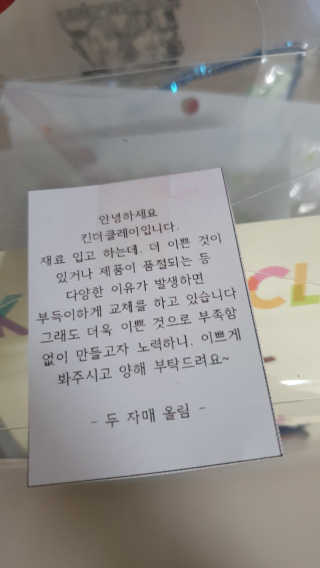 안녕하세요
킨더클레이입니다.
재료 입고 하는데. 더 이쁜 것이
있거나 제품이 품절되는 등
다양한 이유가 발생하면
부득이하게 교체를 하고 있습니다
그래도 더욱 이쁜 것으로 부족함
없이 만들고자 노력하니. 이쁘게
봐주시고 양해 부탁드려요~
- 두 자매 올림 -
K
CL